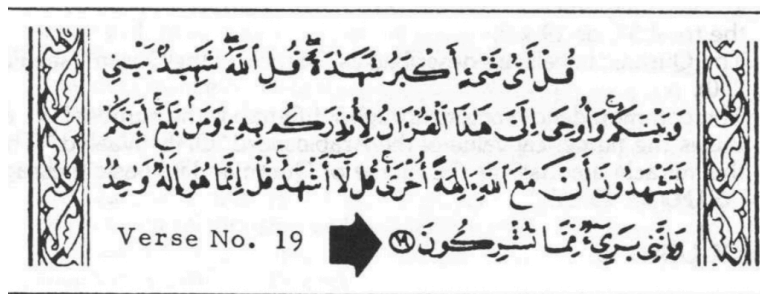 قُلْ أَىُّ شَىْءٍ أَكْبَرُ شَهَٰدَةً ۖ قُلِ ٱللَّهُ ۖ شَهِيدٌۢ بَيْنِى
وَبَيْنَكُمْ ۚ وَأُوحِىَ إِلَىَّ هَٰذَا ٱلْقُرْءَانُ لِأُنذِرَكُم بِهِۦ وَمَنۢ بَلَغَ ۚ أَئِنَّكُمْ
لَتَشْهَدُونَ أَنَّ مَعَ ٱللَّهِ ءَالِهَةً أُخْرَىٰ ۚ قُل لَّآ أَشْهَدُ ۚ قُلْ إِنَّمَا هُوَ إِلَٰهٌ وَٰحِدٌ
وَإِنَّنِى بَرِىٓءٌ مِّمَّا تُشْرِكُونَ ۝١٩ Verse No. 19